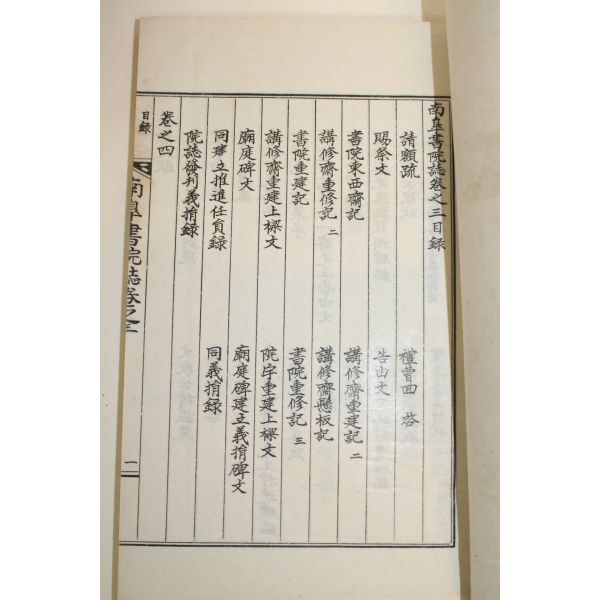 南臯書院誌卷之三目録
請額疏
禮曹回啓
賜祭文
告由文
書院東西齋記
講修齋重建記 二
講修齋重修記 二
講修齋懸板記
書院重建記
書院重修記 三
講修齋重建上樑文
院宇重建上樑文
廟庭碑文
廟庭碑建立義捐碑文
同建立推進任員録
同義捐録
院誌發刊義捐録
卷之四
目録
南臯書院誌卷之三
一